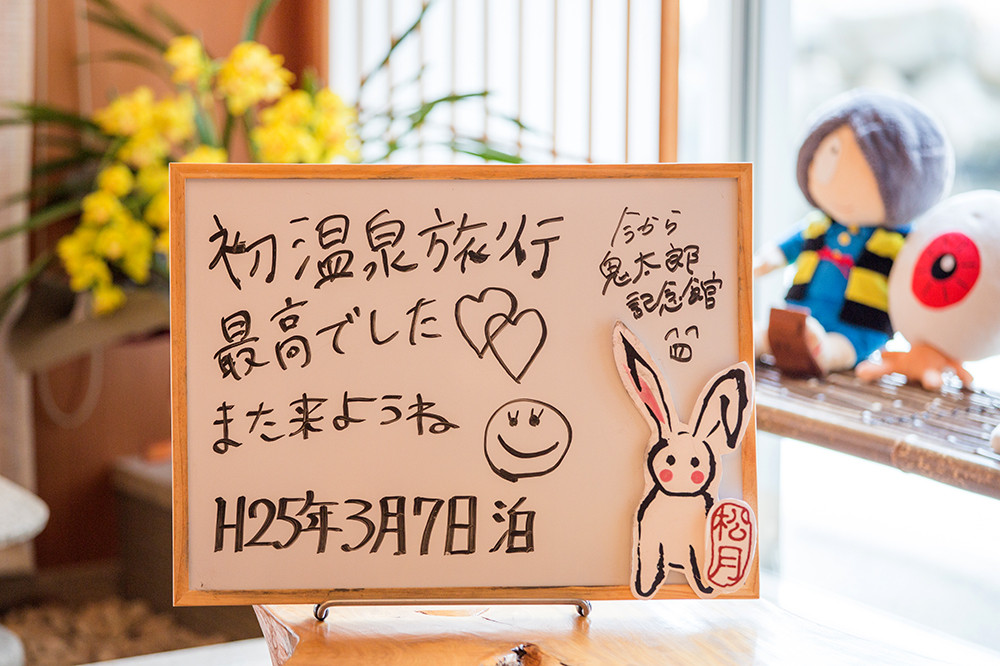 初温泉旅行
最高でした
また来ようね
H25年3月7日 泊
今から
鬼太郎
記念館
松月